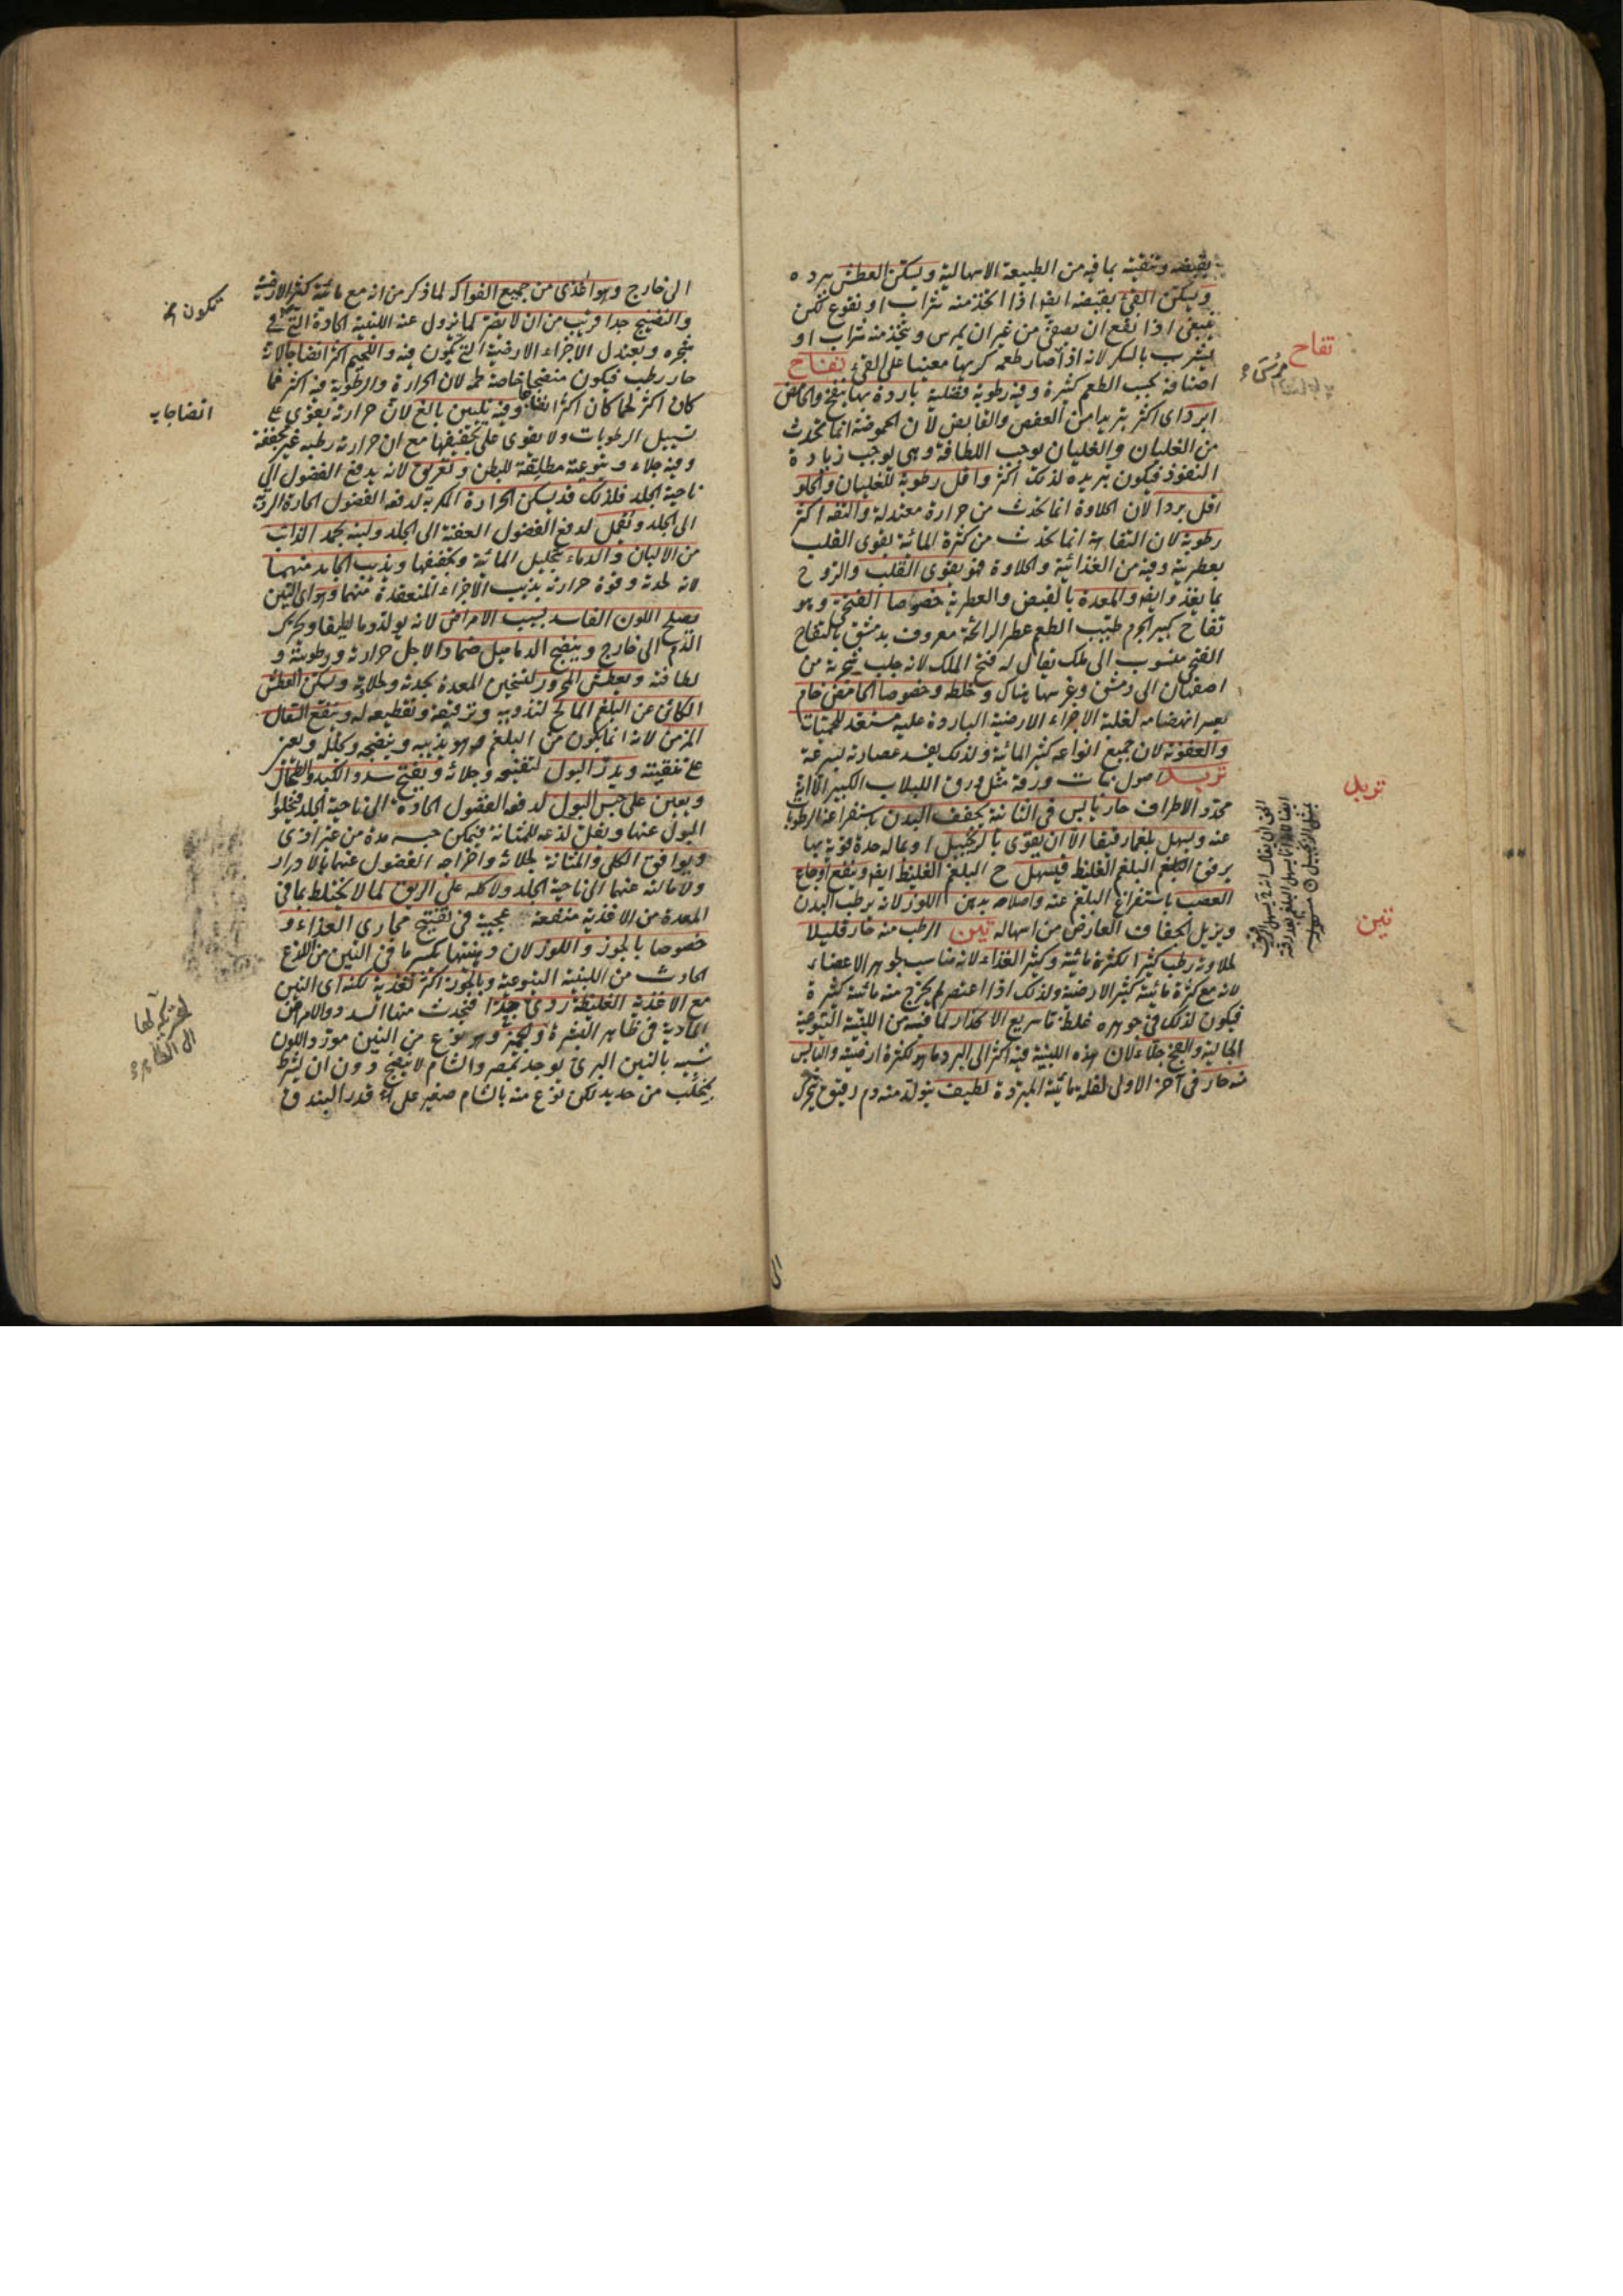 بقبضه وتنقيته بما فيه من الطبيعة الاسهالية ويسكن العطش ببرده
ويسكن القئ بقبضه ايضا اذا اتخذ منه شراب او نقوع لكن
ينبغى اذا نقع ان يصفى من غير ان يمرس ويتخذ منه شراب او
يشرب بالسكر لانه اذا صار طعمه كريها معينا على القئ تفاح
تفاح
اصنافه بحسب الطعم كثيرة وفيه رطوبة فضلية باردة بها ينفخ والحامض
ابرد اى اكثر تبريدا من العفص والقابض لان الحموضة انما تحدث
من الغليان والغليان يوجب اللطافة وهى توجب زيادة
النفوذ فيكون تبريده لذلك اكثر واقل رطوبة للغليان والحلو
اقل بردا لان الحلاوة انما تحدث من حرارة معتدلة والتفه اكثر
رطوبة لان التفاهة انما تحدث من كثرة المائية يقوى القلب
بعطريته وفيه من الغذائية والحلاوة فهو يقوى القلب والروح
بما يغذو ايضا والمعدة بالقبض والعطرية خصوصا الفتحى وهو
تفاح كبير الجرم طيب الطعم عطر الرائحة معروف بدمشق بالتفاح
الفتحى منسوب الى ملك يقال له فتح الملك لانه جلب شجرته من
اصفهان الى دمشق وغرسها هناك وخلطه وخصوصا الحامض خام
بعسر انهضامه لغلبة الاجزاء الارضية الباردة عليه مستعد للحميات
والعفونة لان جميع انواعه كثير المائية ولذلك يفسد عصارته بسرعة
تربد اصول نبات ورقه مثل ورق اللبلاب الكبير الا انه
تربد
محدد الاطراف حار يابس فى الثانية يجفف البدن باستفراغه الرطوبات
عنه ويسهل بلغما رقيقا الا ان يقوى بالزنجبيل او بماله حدة قوية بها
يرقق البلغم الغليظ فيسهل ح البلغم الغليظ ايضا وينفع اوجاع
العصب باستفراغ البلغم عنه واصلاحه بدهن اللوز لانه يرطب البدن
ويزيل الجفاف العارض من اسهاله تين الرطب منه حار قليلا
تين
لحلاوته رطب كثيرا لكثرة مائيته وكثير الغذاء لانه مناسب لجوهر الاعضاء
لانه مع كثرة مائيته كثير الارضية ولذلك اذا اعتصر لم يخرج منه مائية كثيرة
فيكون لذلك فى جوهره غلظ تا سريع الانحدار لما فيه من اللبنية اليتوعية
الجالية والفج جلاء لان هذه اللبنية فيه اكثر الى البرد ما هو لكثرة ارضيته واليابس
منه حار فى آخر الاولى لقلة مائيته المبردة لطيف يتولد منه دم رقيق يتحرك
الى خارج وهو اغذى من جميع الفواكه لما ذكر من انه مع مائيته كثير الارضية
والنضيج جدا قريب من ان لا يضر لما تزول عنه اللبنية الحادة التى فى
شجره ويعتدل الاجزاء الارضية التى تكون فيه واللحيم اكثر انضاجا لانه
حار رطب فيكون منضجا خاصة لحمه لان الحرارة والرطوبة فيه اكثر فما
كان اكثر لحما كان اكثر انضاجا وفيه تليين بالغ لان حرارته يقوى على
تسييل الرطوبات ولا يقوى على تجفيفها مع ان حرارته رطبة غير مجففة
وفيه جلاء ويتوعية مطلقة للبطن وتعريق لانه يدفع الفضول الى
ناحية الجلد فلذلك قد يسكن الحرارة الكربة لدفعه الفضول الحادة الردية
الى الجلد وتقمل لدفع الفضول العفنة الى الجلد ولبنه يجمد الذائب
من الالبان والدماء بتحليل المائية وتجفيفها ويذيب الجامد منهما
لانه لحدته وقوة حرارته يذيب الاجزاء المنعقدة منهما وهو اى التين
يصلح اللون الفاسد بسبب الامراض لانه يولد دما لطيفا ويحرك
الدم الى خارج وينضج الدماميل ضمادا لاجل حرارته ورطوبته و
لطافته ويعطش المحرور لتسخين المعدة بحدته وحلاوته ويسكن العطش
الكائن عن البلغم المالح لتذويبه وترقيقه وتقطيعه له وينفع السعال
المزمن لانه انما يكون من البلغم وهو يذيبه وينضجه ويحلله ويعين
على تنقيته ويدر البول لتفتيحه وجلائه ويفتح سدد الكبد والطحال
ويعين على حبس البول لدفعه الفضول الحادة الى ناحية الجلد فيخلو
البول عنها ويقل لذعه للمثانة فيمكن حبسه مدة من غير اذى
ويوافق الكلى والمثانة لجلائه واخراجه الفضول عنهما بالادرار
ولامالته عنهما الى ناحية الجلد ولاكله على الريق لما لا يختلط بما فى
المعدة من الاغذية منفعة عجيبة فى تفتيح مجارى الغذاء و
خصوصا بالجوز واللوز لان دهنيتهما يكسر ما فى التين من اللذع
الحادث من اللبنية اليتوعية وبالجوز اكثر تغذية لكنه اى التين
مع الاغذية الغليظة ردى جدا فتحدث منها السدد والامراض
المادية فى ظاهر البشرة والجميز وهو نوع من التين مورد اللون
شبيه بالتين البرى يوجد بمصر والشام لا ينضج دون ان يشرط
بمخلب من حديد لكن نوع منه بالشام صغير على قدر البندق
تكون
انضاجا